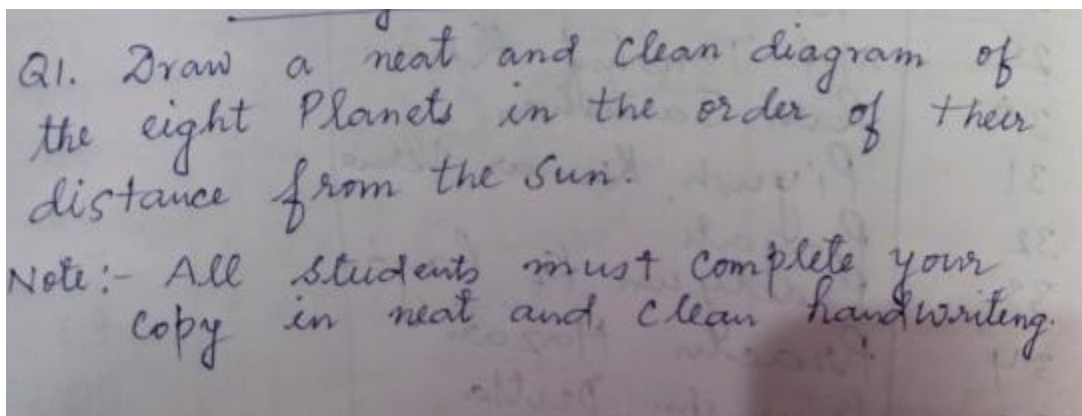 Q1. Draw a neat and clean diagram of
the eight Planets in the order of their
distance from the Sun.
Note:- All students must complete your
copy in neat and clean handwriting.